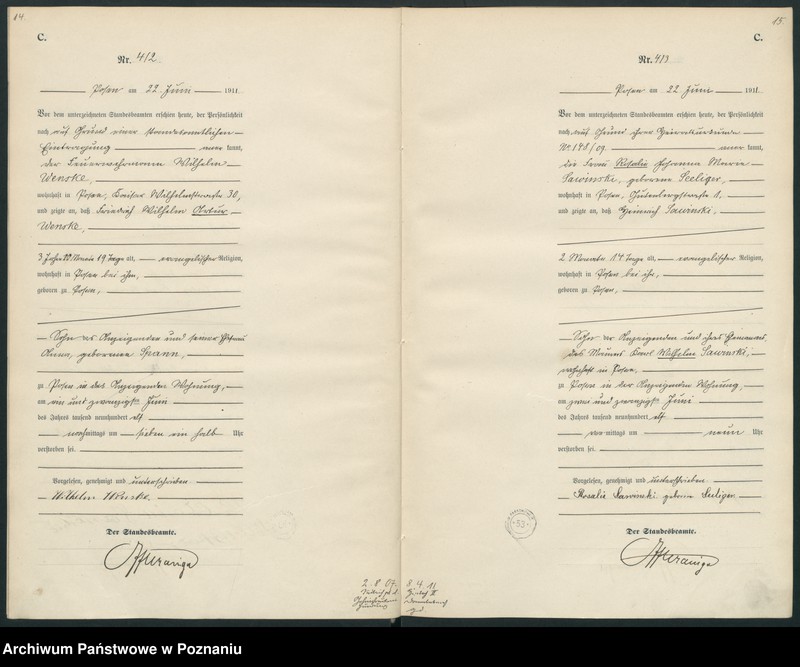 14.
C.
Nr. 412
Posen am 22. Juni 1911.
Vor dem unterzeichneten Standesbeamten erschien heute, der Persönlichkeit
nach auf Grund einer standesamtlichen
Eintragung anerkannt,
der Feuerwehrmann Wilhelm
Wenske,
wohnhaft in Posen, Kaiser Wilhelmstraße 30,
und zeigte an, daß Friedrich Wilhelm Artur
Wenske,
3 Jahre 10 Monate 19 Tage alt, evangelischer Religion,
wohnhaft in Posen bei ihm,
geboren zu Posen,
Sohn des Anzeigenden und seiner Ehefrau
Anna, geborenen Spann,
zu Posen in des Anzeigenden Wohnung,
am ein und zwanzigsten Juni
des Jahres tausend neunhundert elf
mittags um sieben ein halb Uhr
verstorben sei.
Vorgelesen, genehmigt und unterschrieben
Wilhelm Wenske
Der Standesbeamte.
2. 8. 07.
15.
C.
Nr. 413
Posen am 22. Juni 1911.
Vor dem unterzeichneten Standesbeamten erschien heute, der Persönlichkeit
nach auf Grund ihrer Heiratsurkunde
Nr. 148/09. anerkannt,
die Frau Rosalie Johanna Marie
Sawinski, geborene Seeliger,
wohnhaft in Posen, Gutenbergstraße 1,
und zeigte an, daß Heinrich Sawinski,
2 Monate 14 Tage alt, evangelischer Religion,
wohnhaft in Posen bei ihr,
geboren zu Posen,
Sohn der Anzeigenden und ihres Ehemannes,
des Karl Wilhelm Sawinski,
wohnhaft in Posen,
zu Posen in der Anzeigenden Wohnung,
am zwei und zwanzigsten Juni
des Jahres tausend neunhundert elf
vormittags um neun Uhr
verstorben sei.
Vorgelesen, genehmigt und unterschrieben
Rosalie Sawinski geborene Seeliger
Der Standesbeamte.
53
8. 4. 11
Archiwum Państwowe w Poznaniu